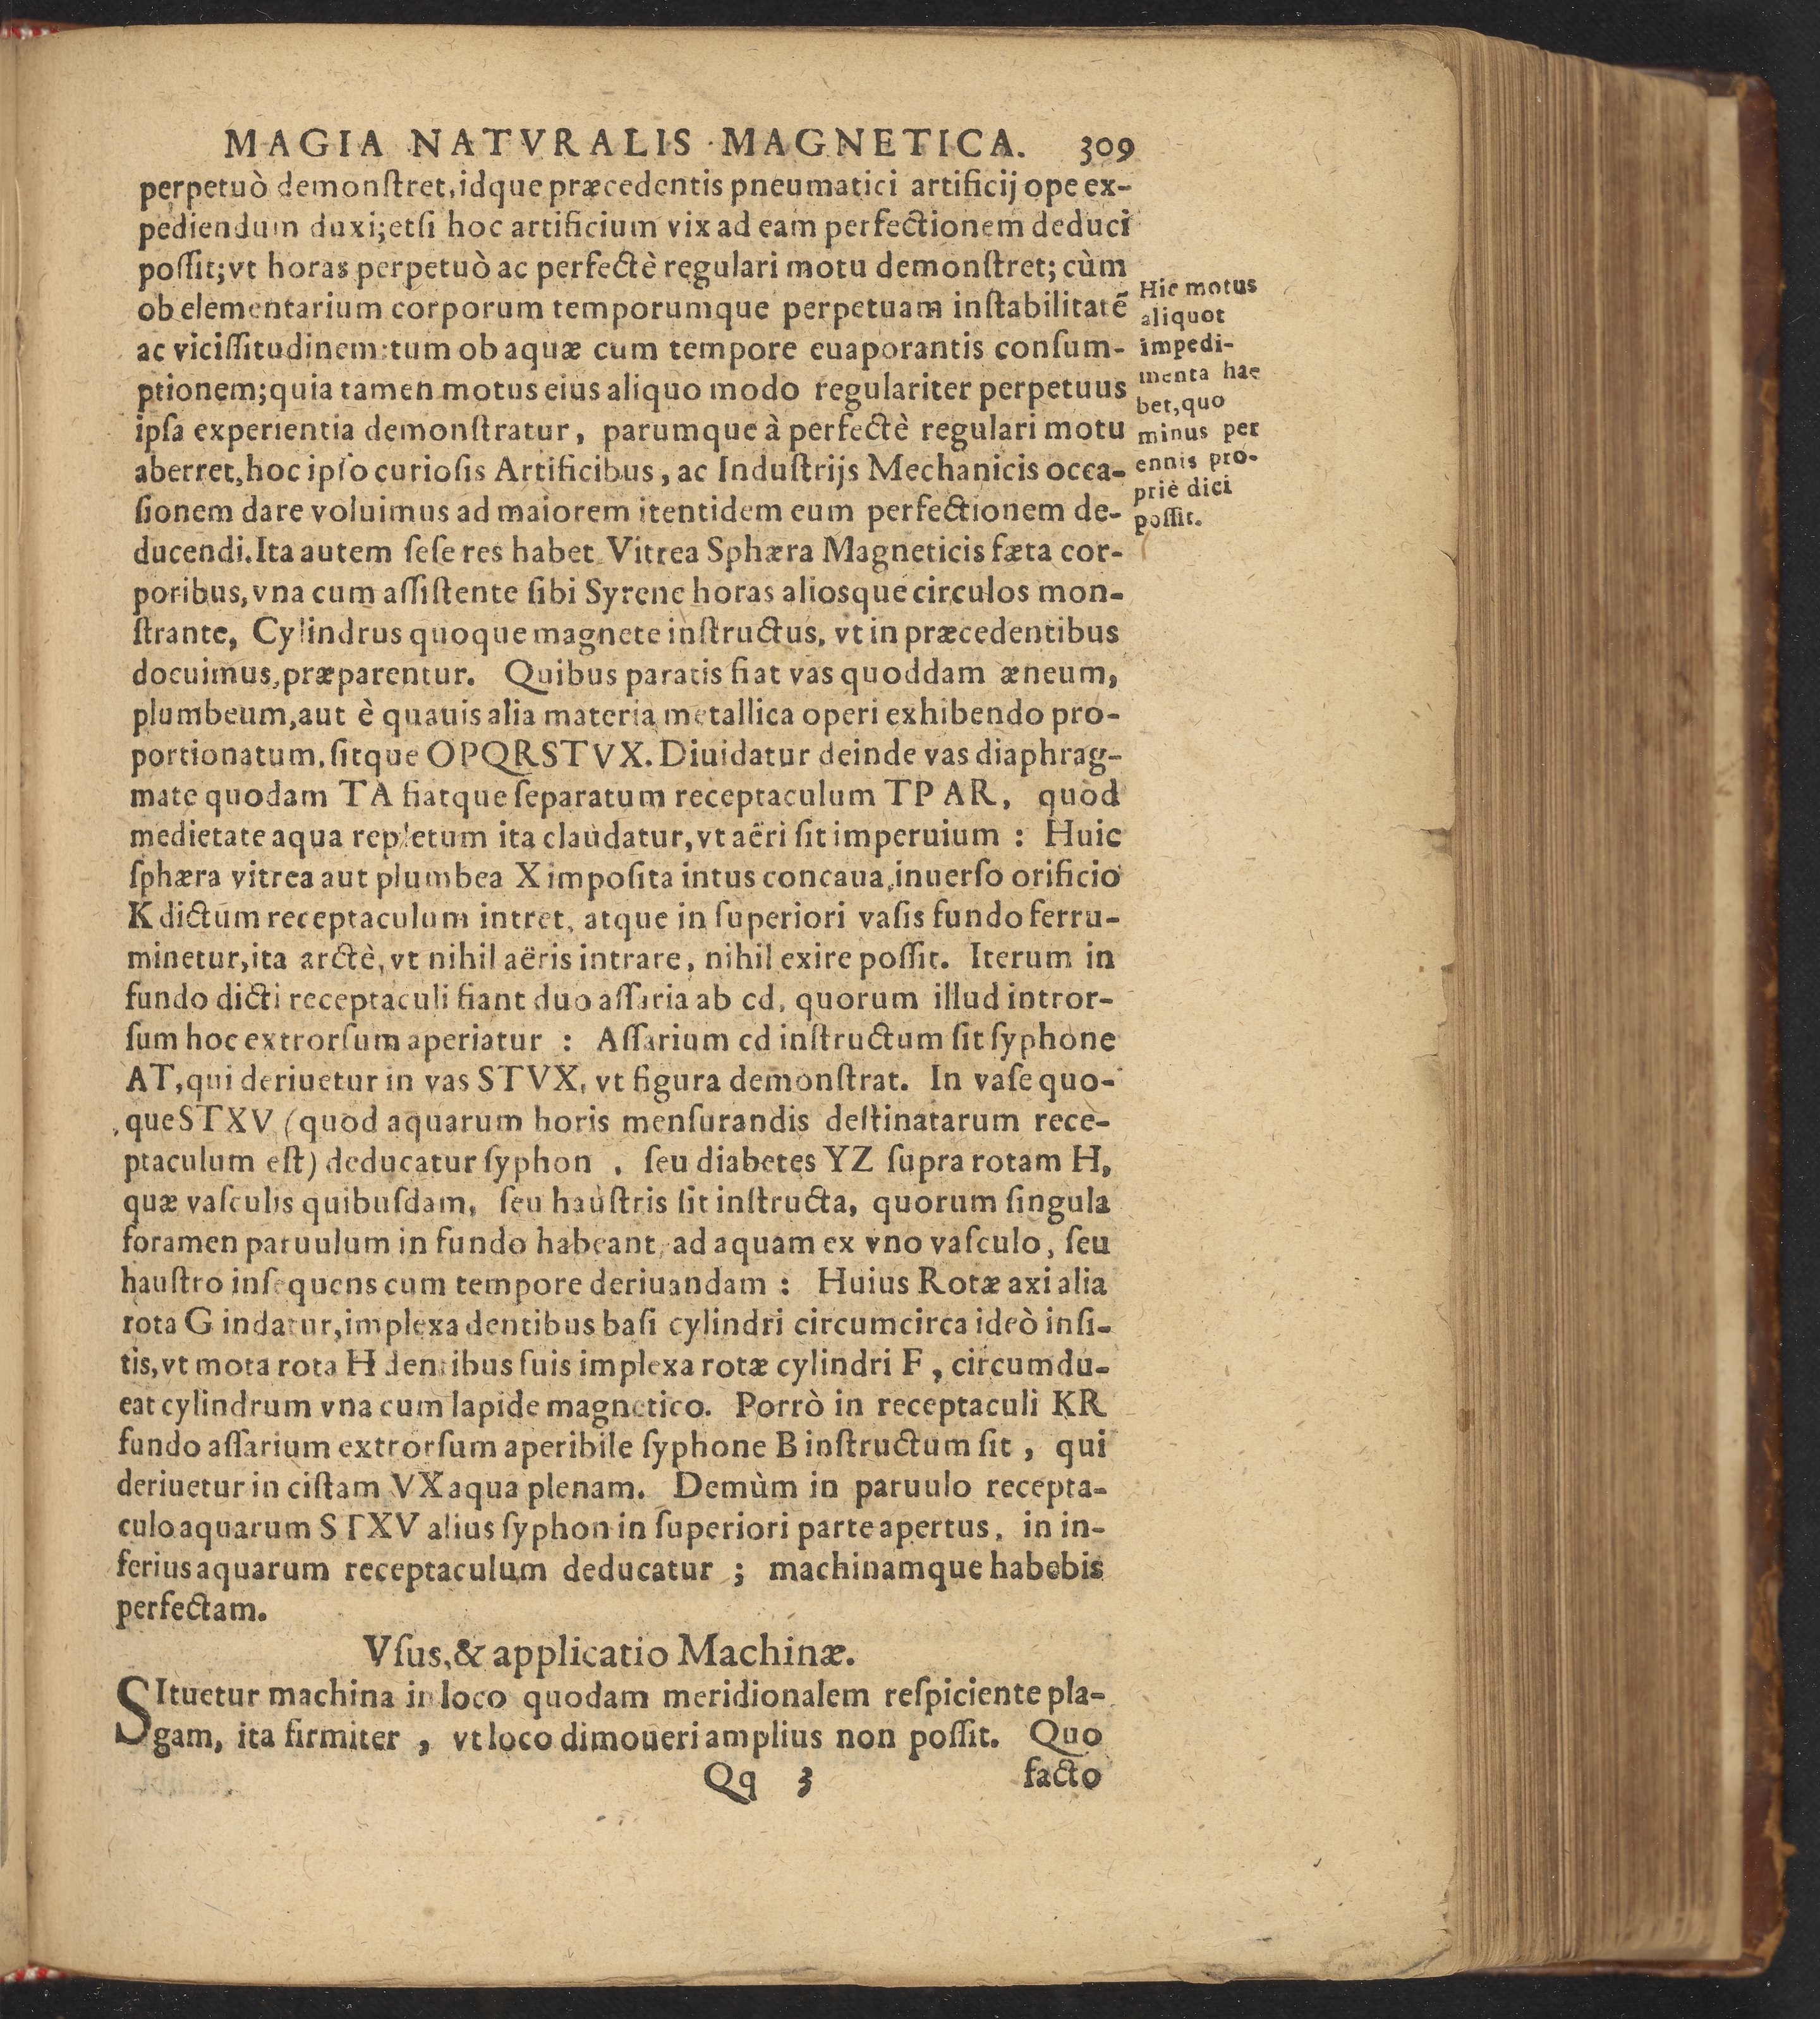 MAGIA NATVRALIS MAGNETICA. 309
perpetuò demonſtret, idque præcedentis pneumatici artificij ope ex-
pediendum duxi; etſi hoc artificium vix ad eam perfectionem deduci
poſſit; vt horas perpetuò ac perfectè regulari motu demonſtret; cùm
ob elementarium corporum temporumque perpetuam inſtabilitatē
ac viciſſitudinem: tum ob aquæ cum tempore euaporantis conſum-
ptionem; quia tamen motus eius aliquo modo regulariter perpetuus
ipſa experientia demonſtratur, parumque à perfectè regulari motu
aberret, hoc ipſo curioſis Artificibus, ac Induſtrijs Mechanicis occa-
ſionem dare voluimus ad maiorem itentidem eum perfectionem de-
ducendi. Ita autem ſeſe res habet. Vitrea Sphæra Magneticis fæta cor-
poribus, vna cum aſſiſtente ſibi Syrene horas aliosque circulos mon-
ſtrante, Cylindrus quoque magnete inſtructus, vt in præcedentibus
docuimus, præparentur. Quibus paratis fiat vas quoddam æneum,
plumbeum, aut è quauis alia materia metallica operi exhibendo pro-
portionatum, ſitque OPQRSTVX. Diuidatur deinde vas diaphrag-
mate quodam TA fiatque ſeparatum receptaculum TPAR, quod
medietate aqua repletum ita claudatur, vt aëri ſit imperuium : Huic
ſphæra vitrea aut plumbea X impoſita intus concaua, inuerſo orificio
K dictum receptaculum intret, atque in ſuperiori vaſis fundo ferru-
minetur, ita arctè, vt nihil aëris intrare, nihil exire poſſit. Iterum in
fundo dicti receptaculi fiant duo aſſaria ab cd, quorum illud intror-
ſum hoc extrorſum aperiatur : Aſſarium cd inſtructum ſit ſyphone
AT, qui deriuetur in vas STVX, vt figura demonſtrat. In vaſe quo-
que STXV (quod aquarum horis menſurandis deſtinatarum rece-
ptaculum eſt) deducatur ſyphon, ſeu diabetes YZ ſupra rotam H,
quæ vaſculis quibuſdam, ſeu hauſtris ſit inſtructa, quorum ſingula
foramen paruulum in fundo habeant, ad aquam ex vno vaſculo, ſeu
hauſtro inſequens cum tempore deriuandam : Huius Rotæ axi alia
rota G indatur, implexa dentibus baſi cylindri circumcirca ideò inſi-
tis, vt mota rota H dentibus ſuis implexa rotæ cylindri F, circumdu-
eat cylindrum vna cum lapide magnetico. Porrò in receptaculi KR
fundo aſſarium extrorſum aperibile ſyphone B inſtructum ſit, qui
deriuetur in ciſtam VX aqua plenam. Demùm in paruulo recepta-
culo aquarum STXV alius ſyphon in ſuperiori parte apertus, in in-
ferius aquarum receptaculum deducatur ; machinamque habebis
perfectam.
Hic motus
aliquot
impedi-
menta hae
bet, quo
minus per
ennis pro-
priè dici
poſſit.
Vſus, & applicatio Machinæ.
SItuetur machina in loco quodam meridionalem reſpiciente pla-
gam, ita firmiter, vt loco dimoueri amplius non poſſit. Quo
Qq 3 facto